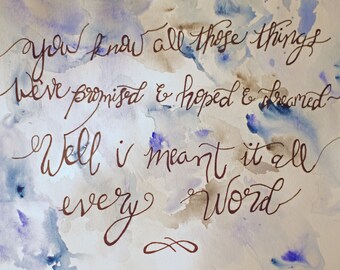 you know all those things
we've promised & hoped & dreamed
Well i meant it all
every word